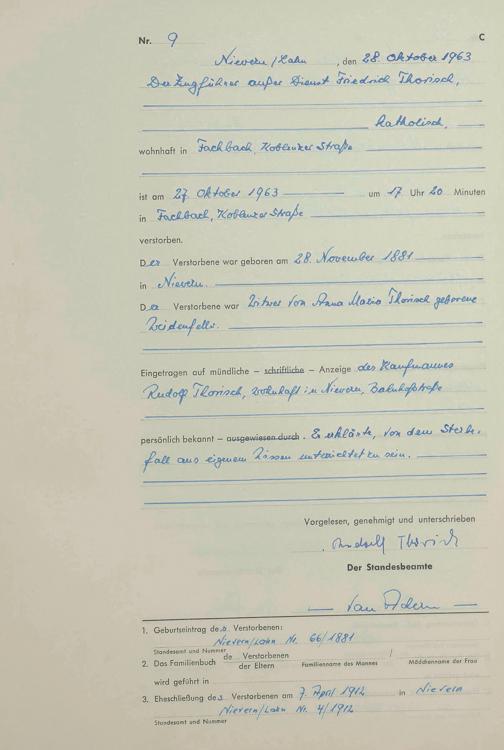 Nr. 9 C
Nievern/Lahn, den 28. Oktober 1963
Der Zugführer außer Dienst Friedrich Thorisch,
katholisch,
wohnhaft in Fachbach, Koblenzer Straße
ist am 27. Oktober 1963 um 17 Uhr 20 Minuten
in Fachbach, Koblenzer Straße
verstorben.
Der Verstorbene war geboren am 28. November 1881
in Nievern.
Der Verstorbene war Witwer von Anna Maria Thorisch geborene
Weidenfeller.
Eingetragen auf mündliche – schriftliche – Anzeige des Kaufmannes
Rudolf Thorisch, wohnhaft in Nievern, Bahnhofstraße
persönlich bekannt – ausgewiesen durch. Er erklärte, von dem Sterbe-
fall aus eigenem Wissen unterrichtet zu sein.
Vorgelesen, genehmigt und unterschrieben
Rudolf Thorisch
Der Standesbeamte
1. Geburtseintrag des Verstorbenen:
Nievern/Lahn Nr. 66/1881
Standesamt und Nummer
2. Das Familienbuch de Verstorbenen /
der Eltern Familienname des Mannes Mädchenname der Frau
wird geführt in
3. Eheschließung des Verstorbenen am 7. April 1912 in Nievern
Nievern/Lahn Nr. 4/1912
Standesamt und Nummer